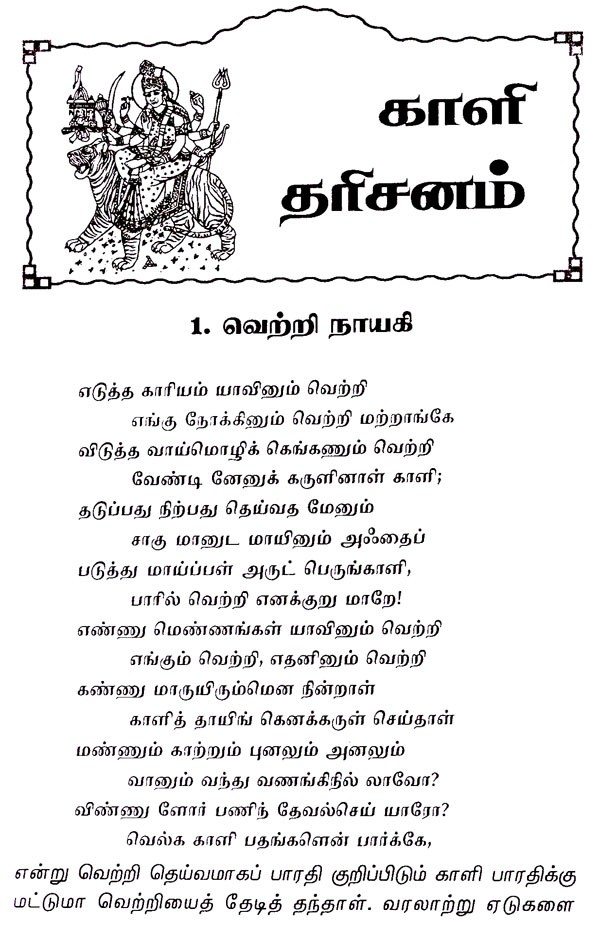 காளி
தரிசனம்
1. வெற்றி நாயகி
எடுத்த காரியம் யாவினும் வெற்றி
எங்கு நோக்கினும் வெற்றி மற்றாங்கே
விடுத்த வாய்மொழிக் கெங்கணும் வெற்றி
வேண்டி னேனுக் கருளினாள் காளி;
தடுப்பது நிற்பது தெய்வத மேனும்
சாகு மானுட மாயினும் அஃதைப்
படுத்து மாய்ப்பள் அருட் பெருங்காளி,
பாரில் வெற்றி எனக்குறு மாறே!
எண்ணு மெண்ணங்கள் யாவினும் வெற்றி
எங்கும் வெற்றி, எதனினும் வெற்றி
கண்ணு மாருயிரும்மென நின்றாள்
காளித் தாயிங் கெனக்கருள் செய்தாள்
மண்ணும் காற்றும் புனலும் அனலும்
வானும் வந்து வணங்கிநில் லாவோ?
விண்ணு ளோர் பணிந் தேவல்செய் யாரோ?
வெல்க காளி பதங்களென் பார்க்கே,
என்று வெற்றி தெய்வமாகப் பாரதி குறிப்பிடும் காளி பாரதிக்கு
மட்டுமா வெற்றியைத் தேடித் தந்தாள். வரலாற்று ஏடுகளை